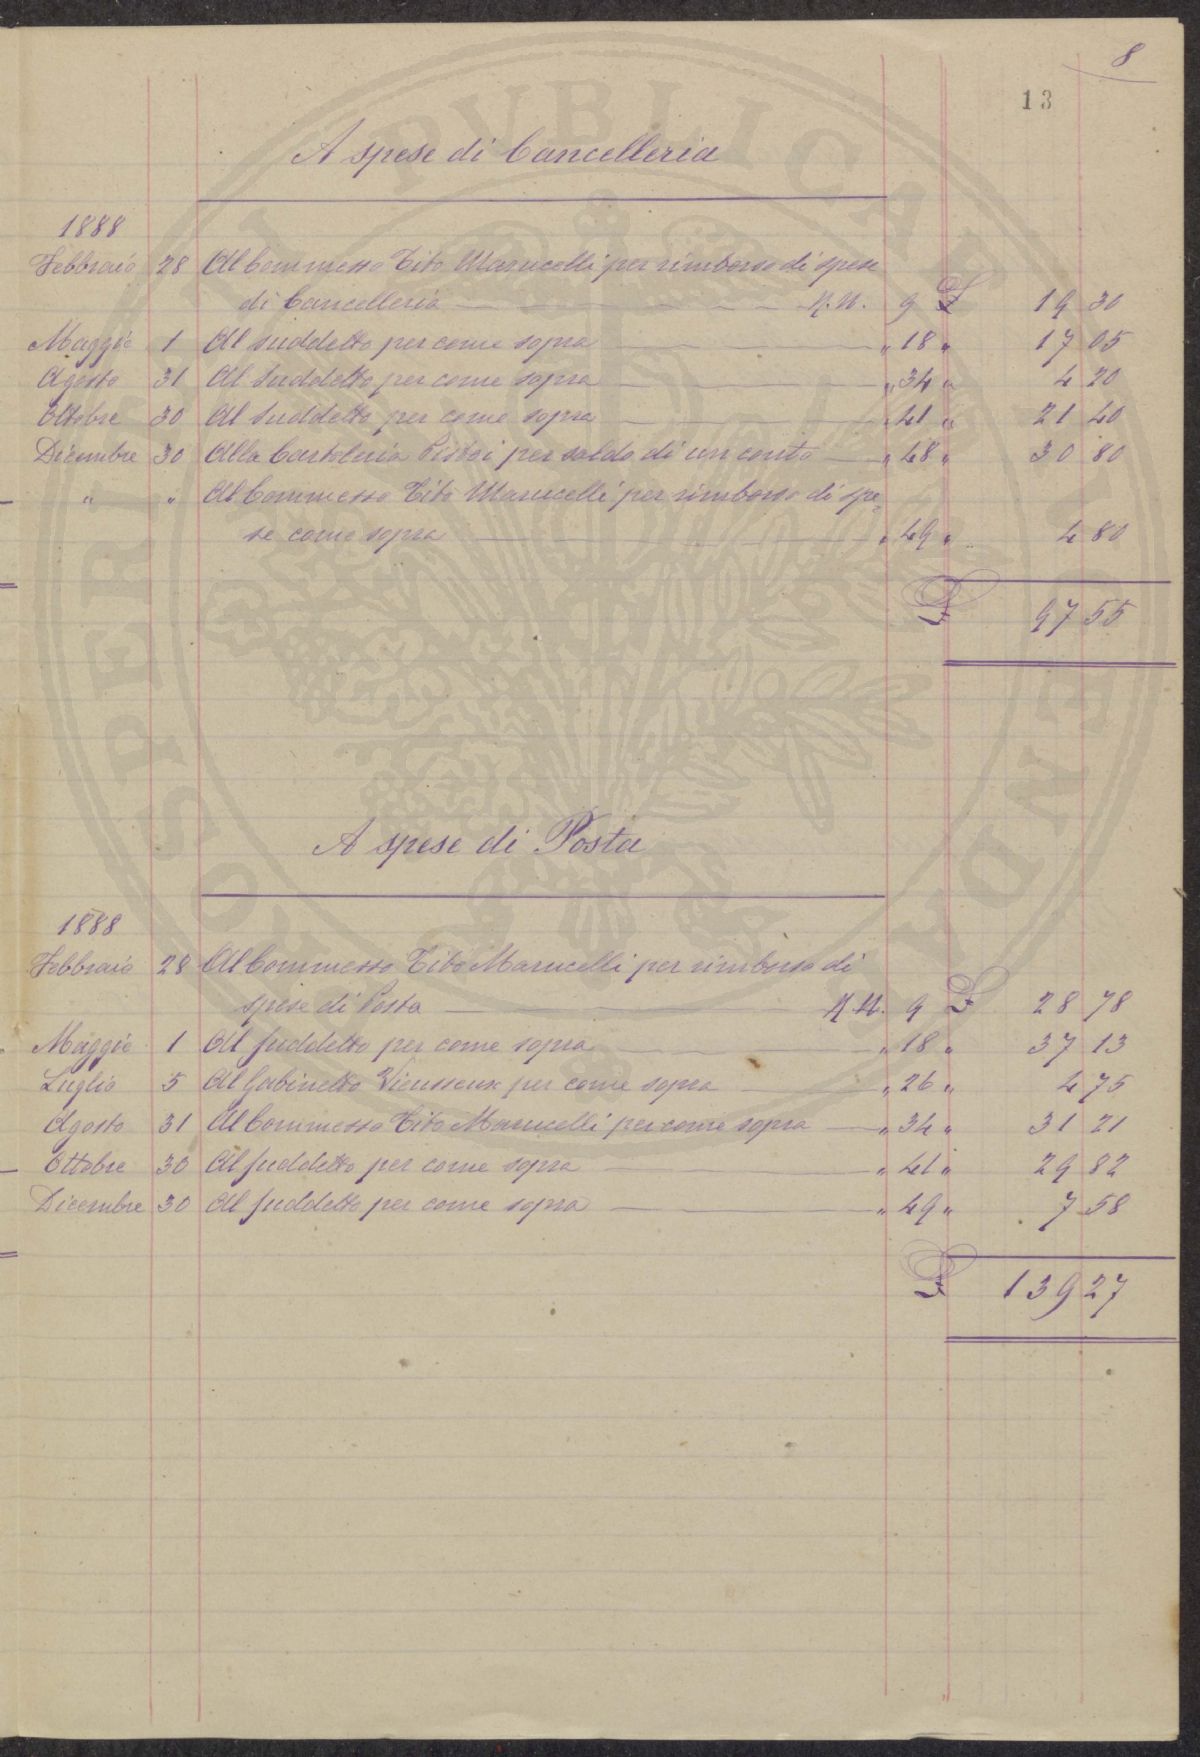 8
13
A spese di Cancelleria
1888
Febbraio 28 Al Commesso Tito Marucelli per rimborso di spese
di Cancelleria — N.M. 9 £ 19 30
Maggio 1 Al suddetto per come sopra — " 18 " 17 05
Agosto 31 Al Suddetto per come sopra — " 34 " 4 20
Ottobre 30 Al Suddetto per come sopra — " 41 " 21 40
Dicembre 30 Alla Cartoleria Pistoi per saldo di un conto — " 48 " 30 80
" " Al Commesso Tito Marucelli per rimborso di spe-
se come sopra — " 49 " 4 80
£ 97 55
A spese di Posta
1888
Febbraio 28 Al Commesso Tito Marucelli per rimborso di
spese di Posta — N.M. 9 £ 28 78
Maggio 1 Al suddetto per come sopra — " 18 " 37 13
Luglio 5 Al Gabinetto Vieusseux per come sopra — " 26 " 4 75
Agosto 31 Al Commesso Tito Marucelli per come sopra — " 34 " 31 21
Ottobre 30 Al suddetto per come sopra — " 41 " 29 82
Dicembre 30 Al suddetto per come sopra — " 49 " 7 58
£ 139 27